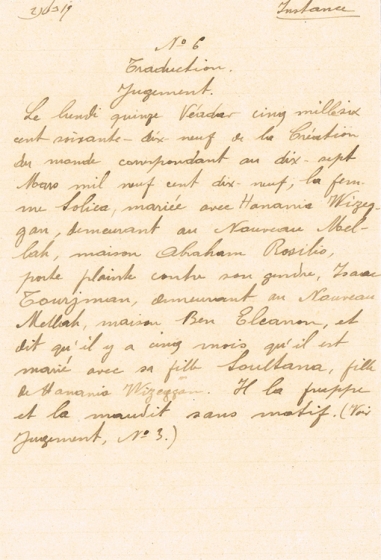 Instance
No 6
Traduction.
Jugement.
Le lundi quinze Véadar cinq mille six
cent soixante-dix neuf de la Création
du monde correspondant au dix-sept
Mars mil neuf cent dix-neuf, la fem-
me Solica, mariée avec Hanania Wizeg-
gan, demeurant au Nouveau Mel-
lah, maison Abraham Rosilio,
porte plainte contre son gendre, Isaac
Tourjman, demeurant au Nouveau
Mellah, maison Ben Eleanon, et
dit qu'il y a cinq mois, qu'il est
marié avec sa fille Soultana, fille
de Hanania Wizeggan. Il la frappe
et la maudit sans motif. (Voir
Jugement, No 3.)